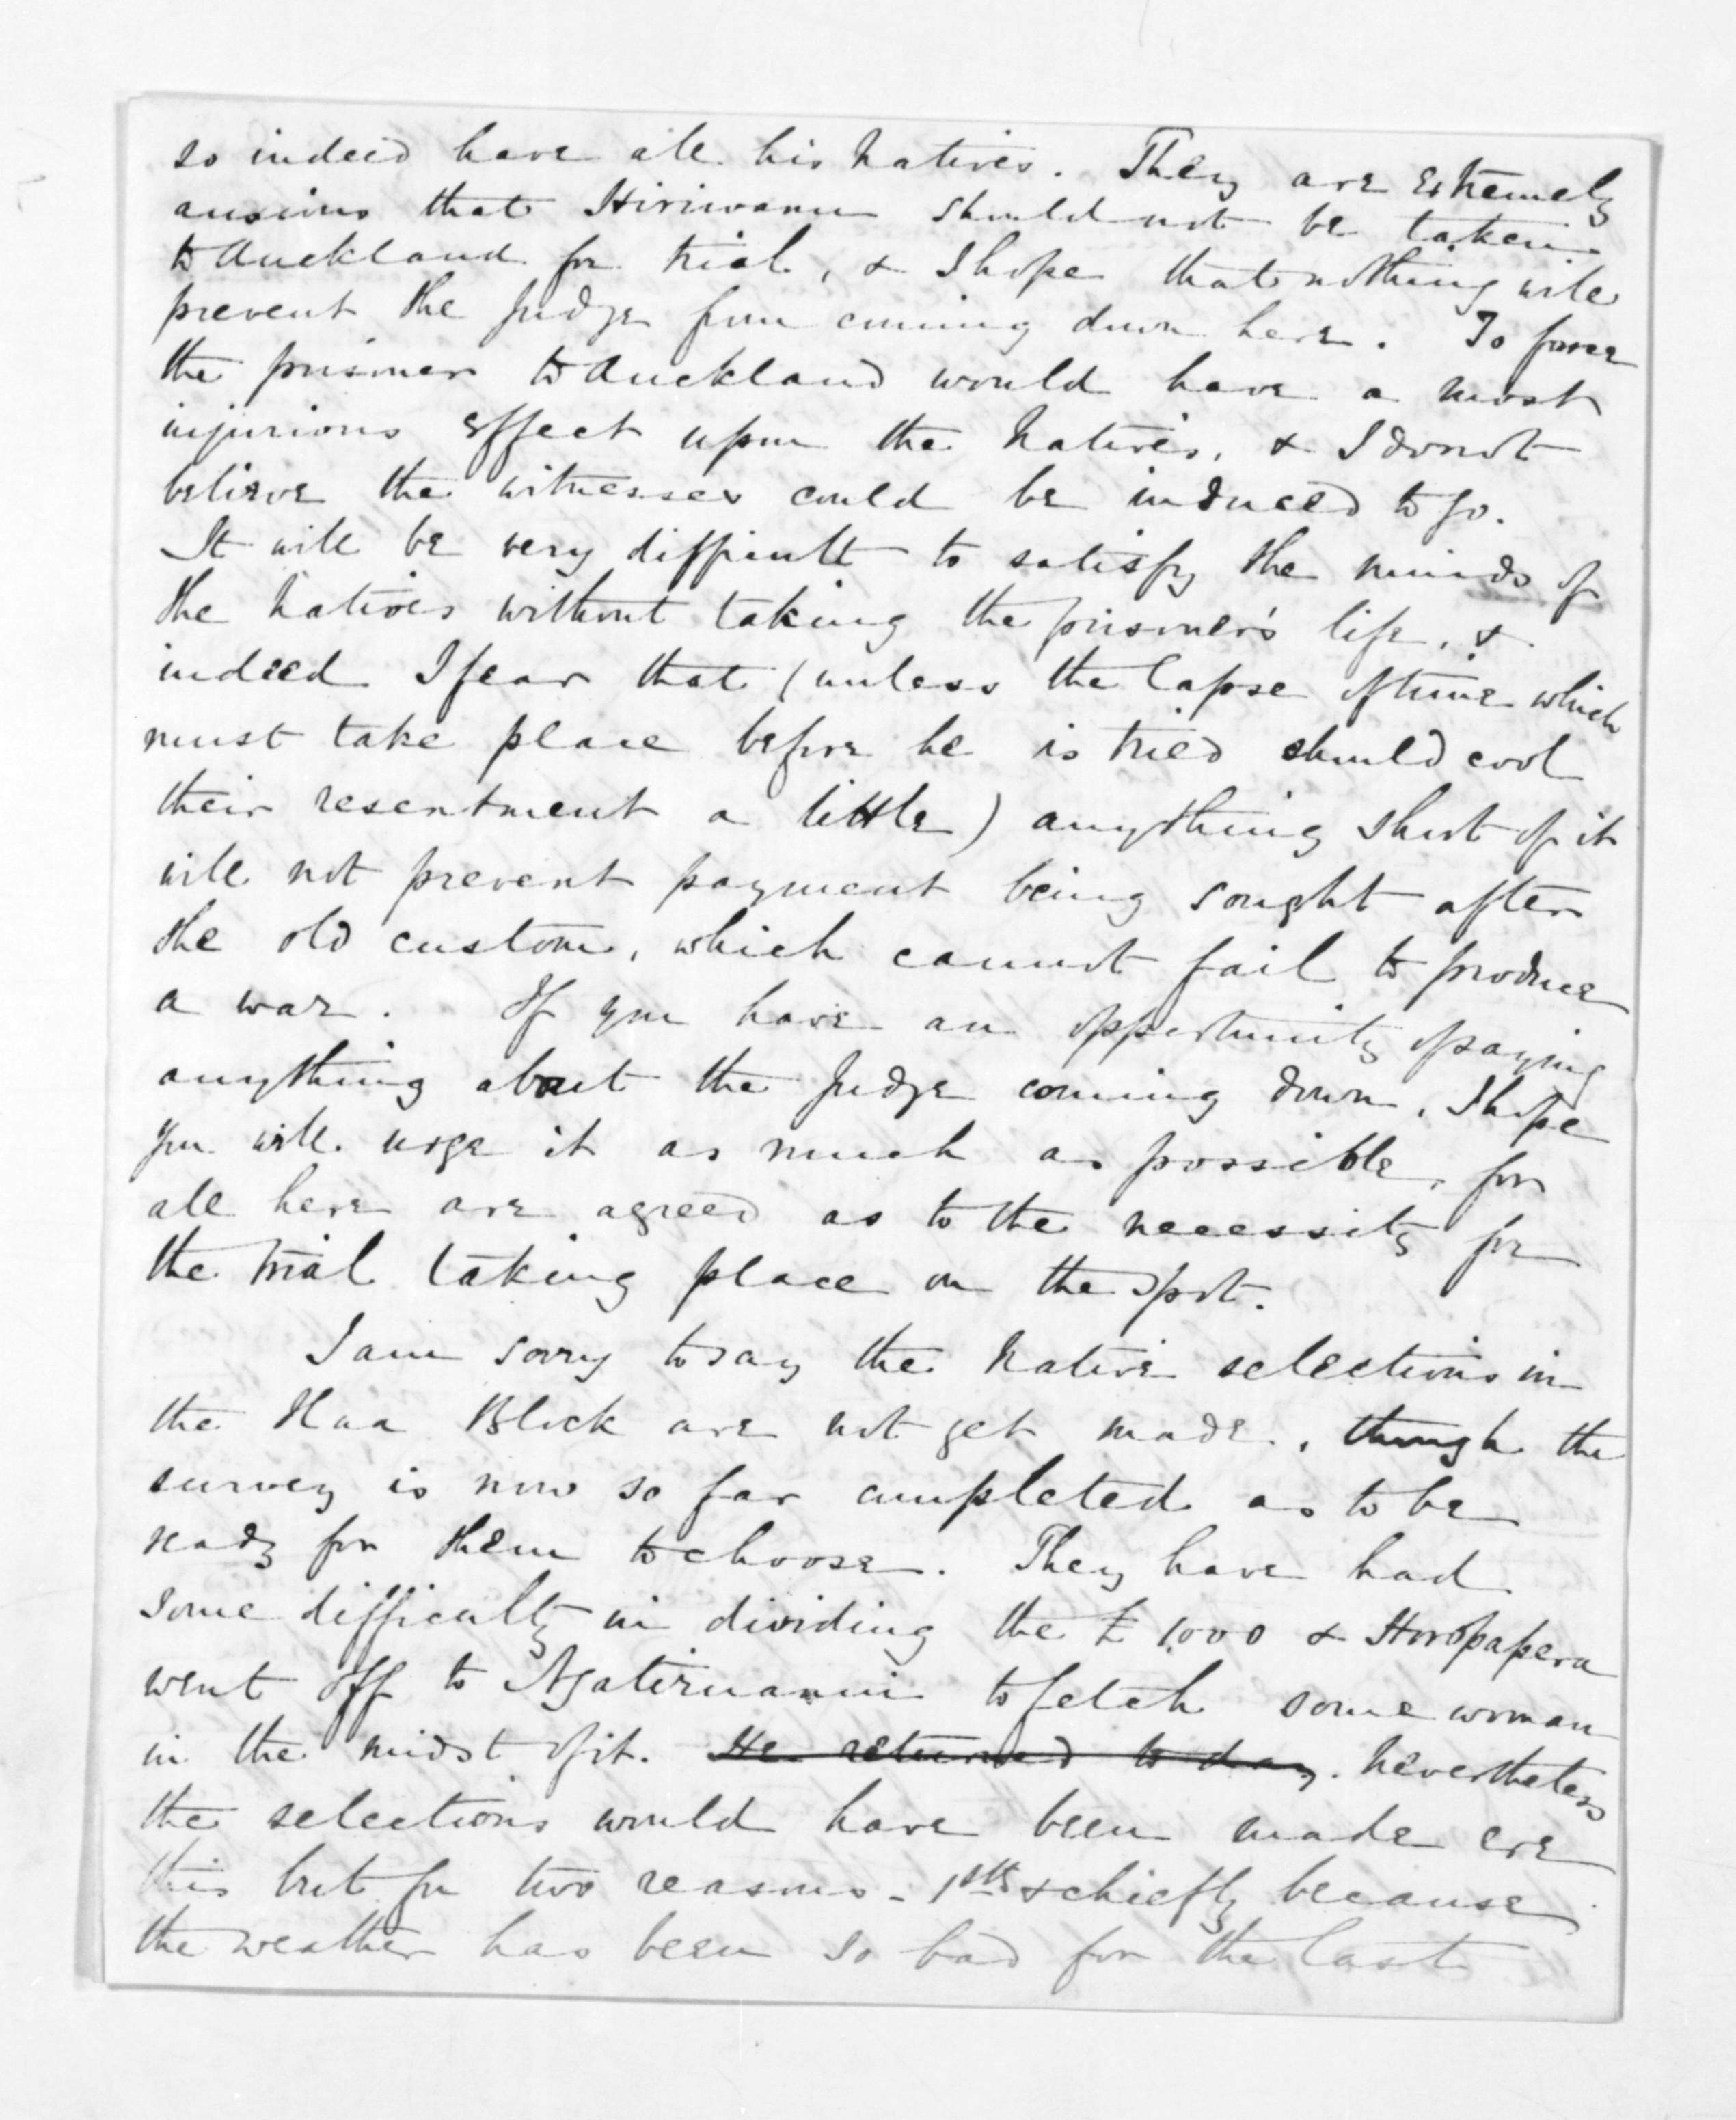 so indeed have all his Natives. They are extremely
anxious that Hiriwanu should not be taken
to Auckland for trial, & I hope that nothing will
prevent the Judge from coming down here. To force
the prisoner to Auckland would have a most
injurious effect upon the Natives, & I do not
believe the witnesses could be induced to go.
It will be very difficult to satisfy the minds of
the Natives without taking the prisoner's life, &
indeed I fear that (unless the lapse of time which
must take place before he is tried should cool
their resentment a little) anything short of it
will not prevent payment being sought after
the old custom, which cannot fail to produce
a war. If you have an opportunity of saying
anything about the Judge coming down, I hope
you will urge it as much as possible, for
all here are agreed as to the necessity for
the trial taking place on the spot.
I am sorry to say the Native selections in
the Hua Block are not yet made, though the
survey is now so far completed as to be
ready for them to choose. They have had
some difficulty in dividing the £1000 & Horopapera
went off to Ngatiruanui to fetch some woman
in the midst of it. He returned to day. Nevertheless
the selections would have been made ere
this but for two reasons - 1st & chiefly because
the weather has been so bad for the last